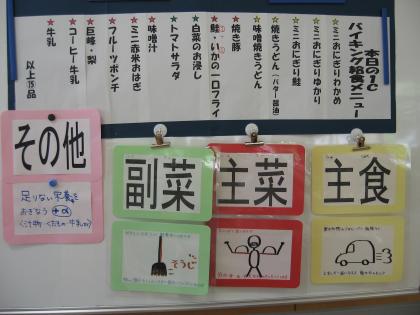 本日の1C
バイキング給食メニュー
★ミニおにぎりわかめ
★ミニおにぎりゆかり
★ミニおにぎり鮭
★焼きうどん（バター醤油）
★味噌焼きうどん
★焼き豚
★鮭・いかの一口フライ
★白菜のお浸し
★トマトサラダ
★味噌汁
★ミニ赤米おはぎ
★フルーツポンチ
★巨峰・梨
★コーヒー牛乳
★牛乳
以上⑮品
主食
主菜
副菜
そうじ
その他
足りない栄養を
おぎなう